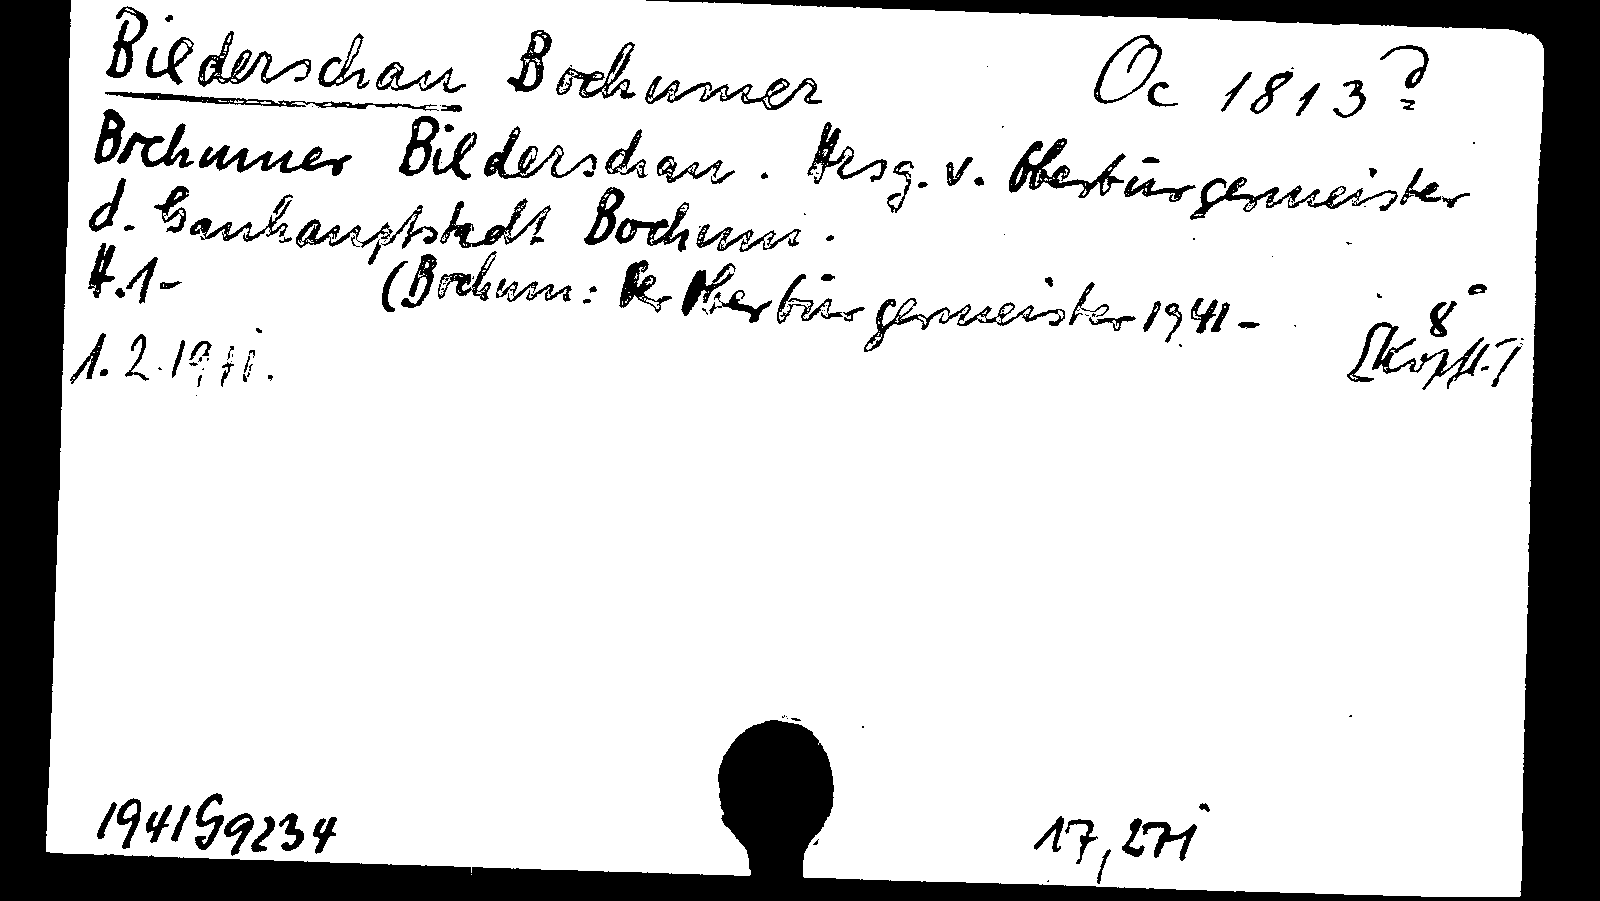 Bilderschau Bochumer Oc 1813 d
Bochumer Bilderschau. Hrsg. v. Oberbürgermeister
d. Gauhauptstadt Bochum.
H.1- (Bochum: Der Oberbürgermeister 1941- 8°
1. 2. 1941. [Kopft.]
1941G9234 17,271